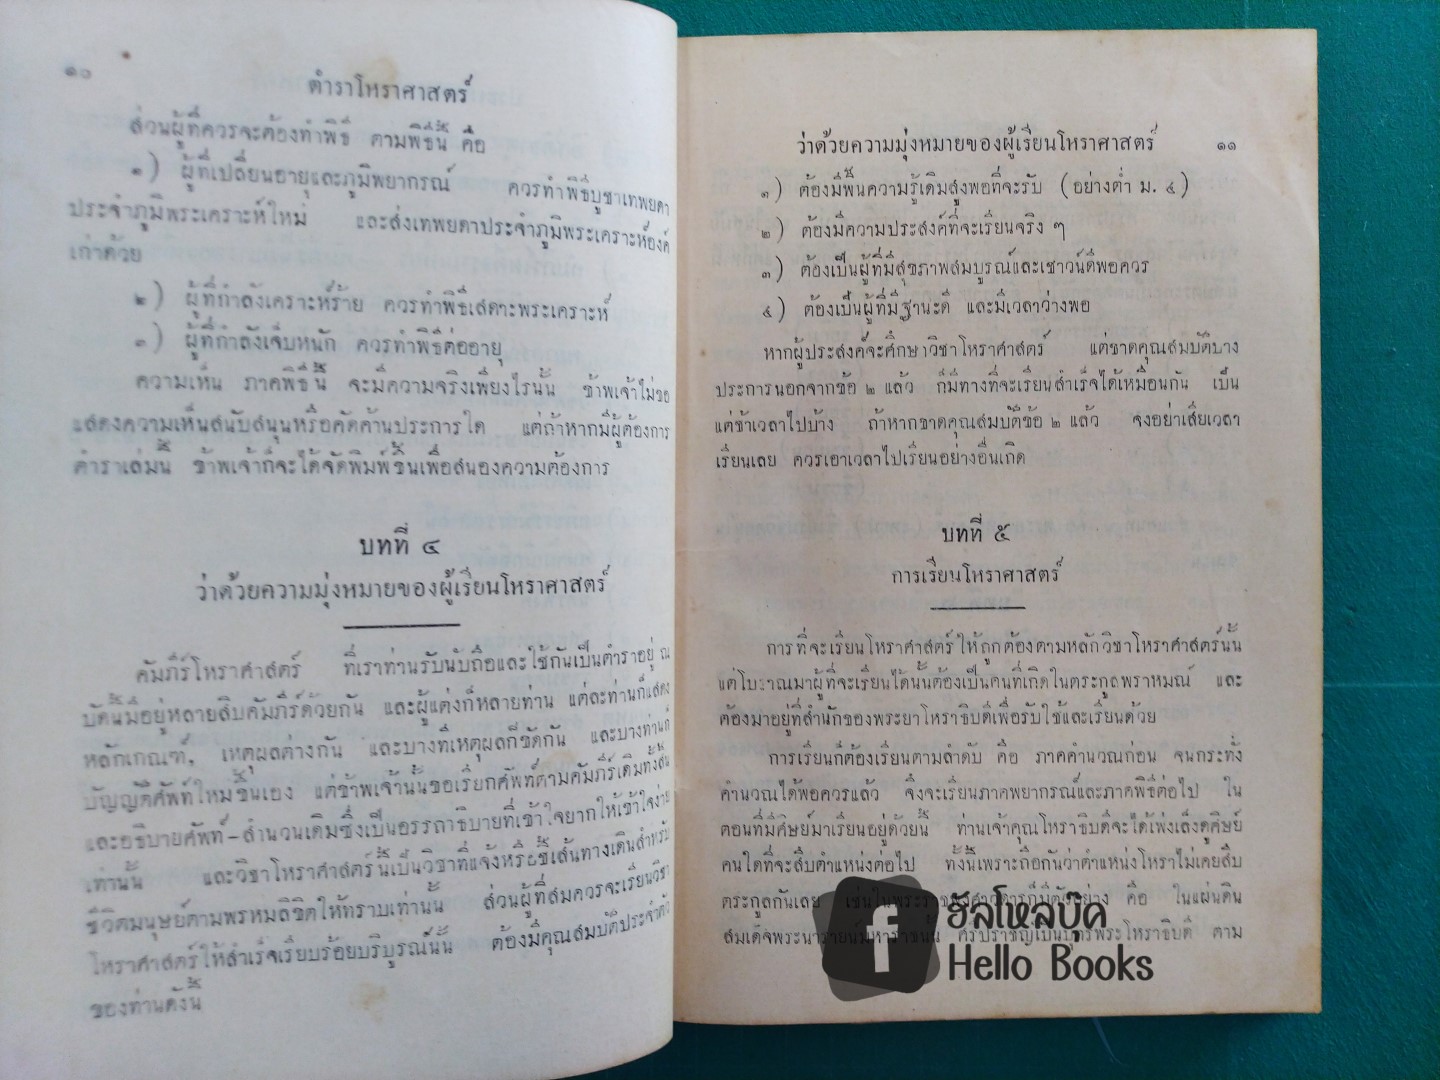 ๑๐
ตำราโหราศาสตร์
ส่วนผู้ที่ควรจะต้องทำพิธี ตามพิธีนี้ คือ
๑) ผู้ที่เปลี่ยนอายุและภูมิพยากรณ์ ควรทำพิธีบูชาเทพยดา
ประจำภูมิพระเคราะห์ใหม่ และส่งเทพยดาประจำภูมิพระเคราะห์องค์
เก่าด้วย
๒) ผู้ที่กำลังเคราะห์ร้าย ควรทำพิธีเสดาะพระเคราะห์
๓) ผู้ที่กำลังเจ็บหนัก ควรทำพิธีต่ออายุ
ความเห็น ภาคพิธีนี้ จะมีความจริงเพียงไรนั้น ข้าพเจ้าไม่ขอ
แสดงความเห็นสนับสนุนหรือคัดค้านประการใด แต่ถ้าหากมีผู้ต้องการ
ตำราเล่มนี้ ข้าพเจ้าก็จะได้จัดพิมพ์ขึ้นเพื่อสนองความต้องการ
บทที่ ๔
ว่าด้วยความมุ่งหมายของผู้เรียนโหราศาสตร์
คัมภีร์โหราศาสตร์ ที่เราท่านรับนับถือและใช้กันเป็นตำราอยู่ ณ
บัดนี้มีอยู่หลายสิบคัมภีร์ด้วยกัน และผู้แต่งก็หลายท่าน แต่ละท่านก็แสดง
หลักเกณฑ์, เหตุผลต่างกัน และบางที่เหตุผลก็ขัดกัน และบางท่านก็
บัญญัติศัพท์ใหม่ขึ้นเอง แต่ข้าพเจ้านั้นขอเรียกศัพท์ตามคัมภีร์เดิมทั้งสิ้น
และอธิบายศัพท์-สำนวนเดิมซึ่งเป็นอรรถาธิบายที่เข้าใจยากให้เข้าใจง่าย
เท่านั้น และวิชาโหราศาสตร์นี้เป็นวิชาที่แจ้งหรือชี้เส้นทางเดินสำหรับ
ชีวิตมนุษย์ตามพรหมลิขิตให้ทราบเท่านั้น ส่วนผู้ที่สมควรจะเรียนวิชา
โหราศาสตร์ให้สำเร็จเรียบร้อยบริบูรณ์นั้น ต้องมีคุณสมบัติประจำตัว
ของท่านดังนี้
ว่าด้วยความมุ่งหมายของผู้เรียนโหราศาสตร์ ๑๑
๑) ต้องมีพื้นความรู้เดิมสูงพอที่จะรับ (อย่างต่ำ ม. ๔)
๒) ต้องมีความประสงค์ที่จะเรียนจริง ๆ
๓) ต้องเป็นผู้ที่มีสุขภาพสมบูรณ์และเชาวน์ดีพอควร
๔) ต้องเป็นผู้ที่มีฐานะดี และมีเวลาว่างพอ
หากผู้ประสงค์จะศึกษาวิชาโหราศาสตร์ แต่ขาดคุณสมบัติบาง
ประการนอกจากข้อ ๒ แล้ว ก็มีทางที่จะเรียนสำเร็จได้เหมือนกัน เป็น
แต่ช้าเวลาไปบ้าง ถ้าหากขาดคุณสมบัติข้อ ๒ แล้ว จงอย่าเสียเวลา
เรียนเลย ควรเอาเวลาไปเรียนอย่างอื่นเถิด
บทที่ ๕
การเรียนโหราศาสตร์
การที่จะเรียนโหราศาสตร์ให้ถูกต้องตามหลักวิชาโหราศาสตร์นั้น
แต่โบราณมาผู้ที่จะเรียนได้นั้นต้องเป็นคนที่เกิดในตระกูลพราหมณ์ และ
ต้องมาอยู่ที่สำนักของพระยาโหราธิบดีเพื่อรับใช้และเรียนด้วย
การเรียนก็ต้องเรียนตามลำดับ คือ ภาคคำนวณก่อน จนกระทั่ง
คำนวณได้พอควรแล้ว จึงจะเรียนภาคพยากรณ์และภาคพิธีต่อไป ใน
ตอนที่มีศิษย์มาเรียนอยู่ด้วยนี้ ท่านเจ้าคุณโหราธิบดีจะได้เพ่งเล็งดูศิษย์
คนใดที่จะสืบตำแหน่งต่อไป ทั้งนี้เพราะถือกันว่าตำแหน่งโหราไม่เคยสืบ
ตระกูลกันเลย เช่นในพระราชพงศาวดารก็มีตัวอย่าง คือ ในแผ่นดิน
สมเด็จพระนารายน์มหาราชนั้น ศรีปราชญ์เป็นบุตรพระโหราธิบดี ตาม
ฮัลโหลบุ๊ค
Hello Books